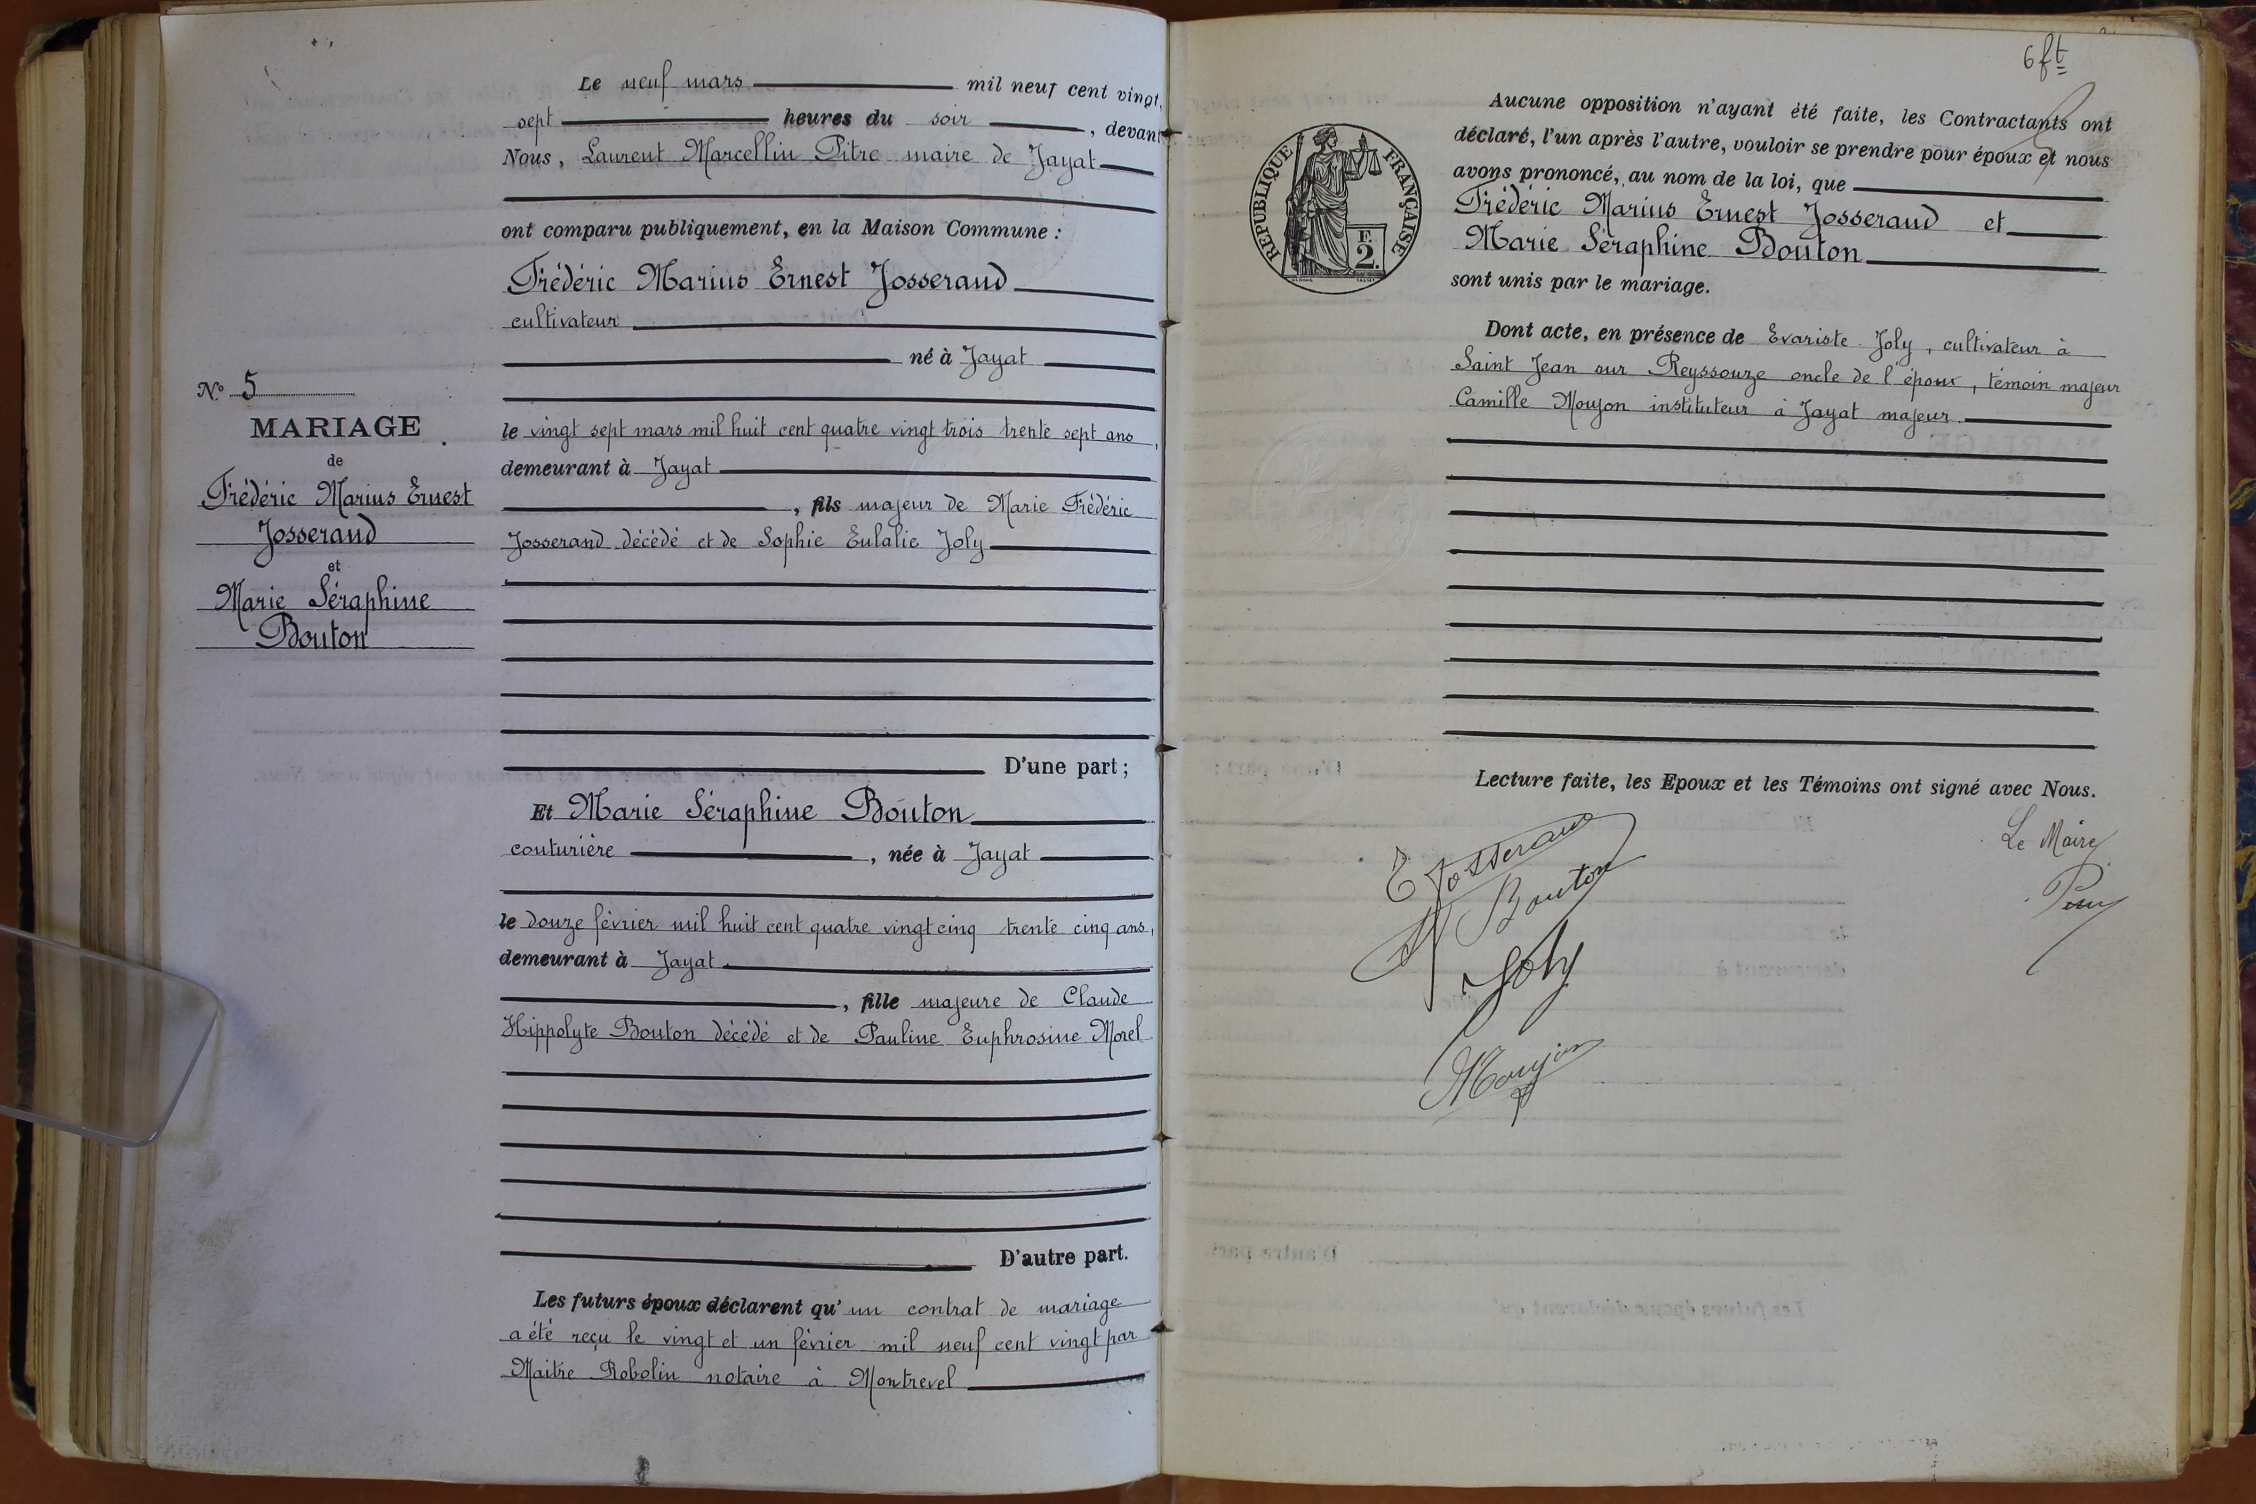 Le neuf mars mil neuf cent vingt,
sept heures du soir, devant
Nous, Laurent Marcellin Pitre maire de Jayat
ont comparu publiquement, en la Maison Commune :
Frédéric Marius Ernest Josserand
cultivateur
né à Jayat
le vingt sept mars mil huit cent quatre vingt trois trente sept ans,
demeurant à Jayat
, fils majeur de Marie Frédéric
Josserand décédé et de Sophie Eulalie Joly
D'une part ;
Et Marie Séraphine Bouton
couturière, née à Jayat
le douze février mil huit cent quatre vingt cinq trente cinq ans,
demeurant à Jayat
, fille majeure de Claude
Hippolyte Bouton décédé et de Pauline Euphrosine Morel
D'autre part.
Les futurs époux déclarent qu'un contrat de mariage
a été reçu le vingt et un février mil neuf cent vingt par
Maitre Robolin notaire à Montrevel
N° 5
MARIAGE
de
Frédéric Marius Ernest
Josserand
et
Marie Séraphine
Bouton
6 ft
REPUBLIQUE FRANÇAISE
F.
2.
Aucune opposition n'ayant été faite, les Contractants ont
déclaré, l'un après l'autre, vouloir se prendre pour époux et nous
avons prononcé, au nom de la loi, que
Frédéric Marius Ernest Josserand et
Marie Séraphine Bouton
sont unis par le mariage.
Dont acte, en présence de Evariste Joly, cultivateur à
Saint Jean sur Reyssouze oncle de l'époux, témoin majeur
Camille Moujon instituteur à Jayat majeur
Lecture faite, les Epoux et les Témoins ont signé avec Nous.
Le Maire
E Josserand
Bouton
Joly
Moujon